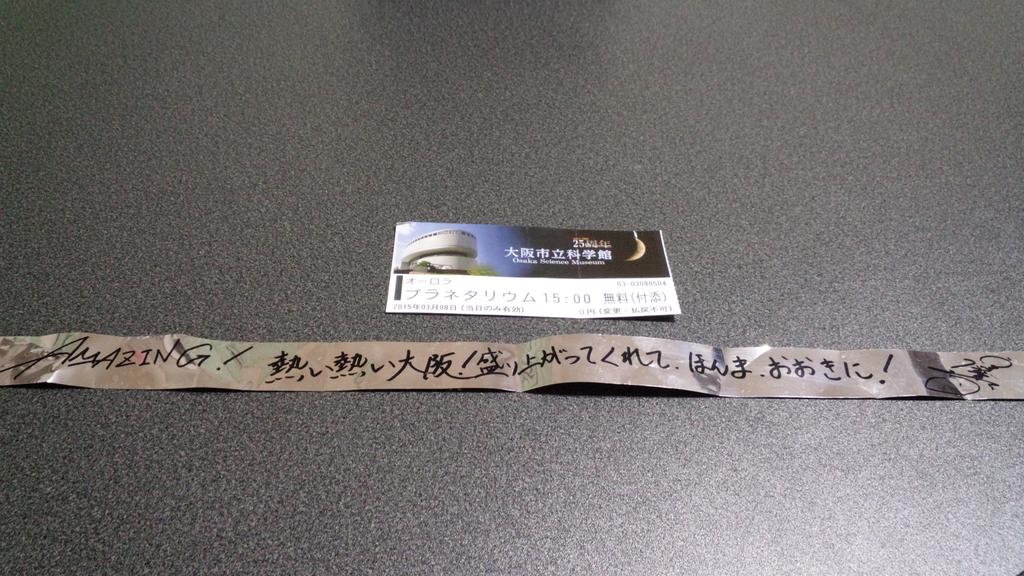 25周年
大阪市立科学館
Osaka Science Museum
オーロラ
03-03080504
プラネタリウム 15:00 無料(付添)
2015年03月08日(当日のみ有効)
0円(変更・払戻不可)
AMAZING! 熱い熱い大阪!盛り上がってくれて、ほんま、おおきに!